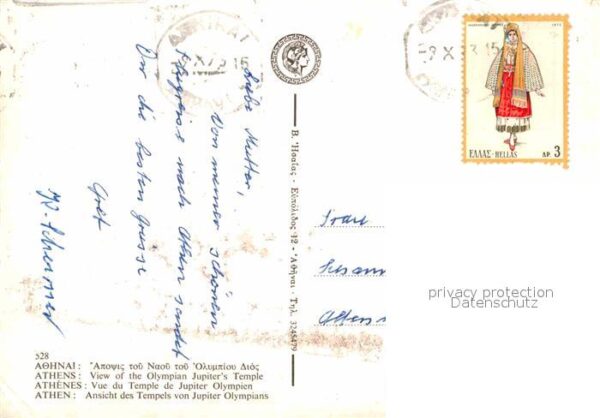 Liebe Mutter,
Von meiner schönen
Flugreise nach Athen sendet
Dir die besten Grüsse
ΑΘΗΝΑΙ
-9 X 73 15
ΕΛΛΑΣ-HELLAS ΔΡ 3
Β. Ήσαΐας - Εὐπόλιδος 12 - Ἀθῆναι - Τηλ. 3245479
Frau
privacy protection
Datenschutz
528
ΑΘΗΝΑΙ : Ἄποψις τοῦ Ναοῦ τοῦ Ὀλυμπίου Διός
ATHENS : View of the Olympian Jupiter's Temple
ATHÈNES : Vue du Temple de Jupiter Olympien
ATHEN : Ansicht des Tempels von Jupiter Olympians